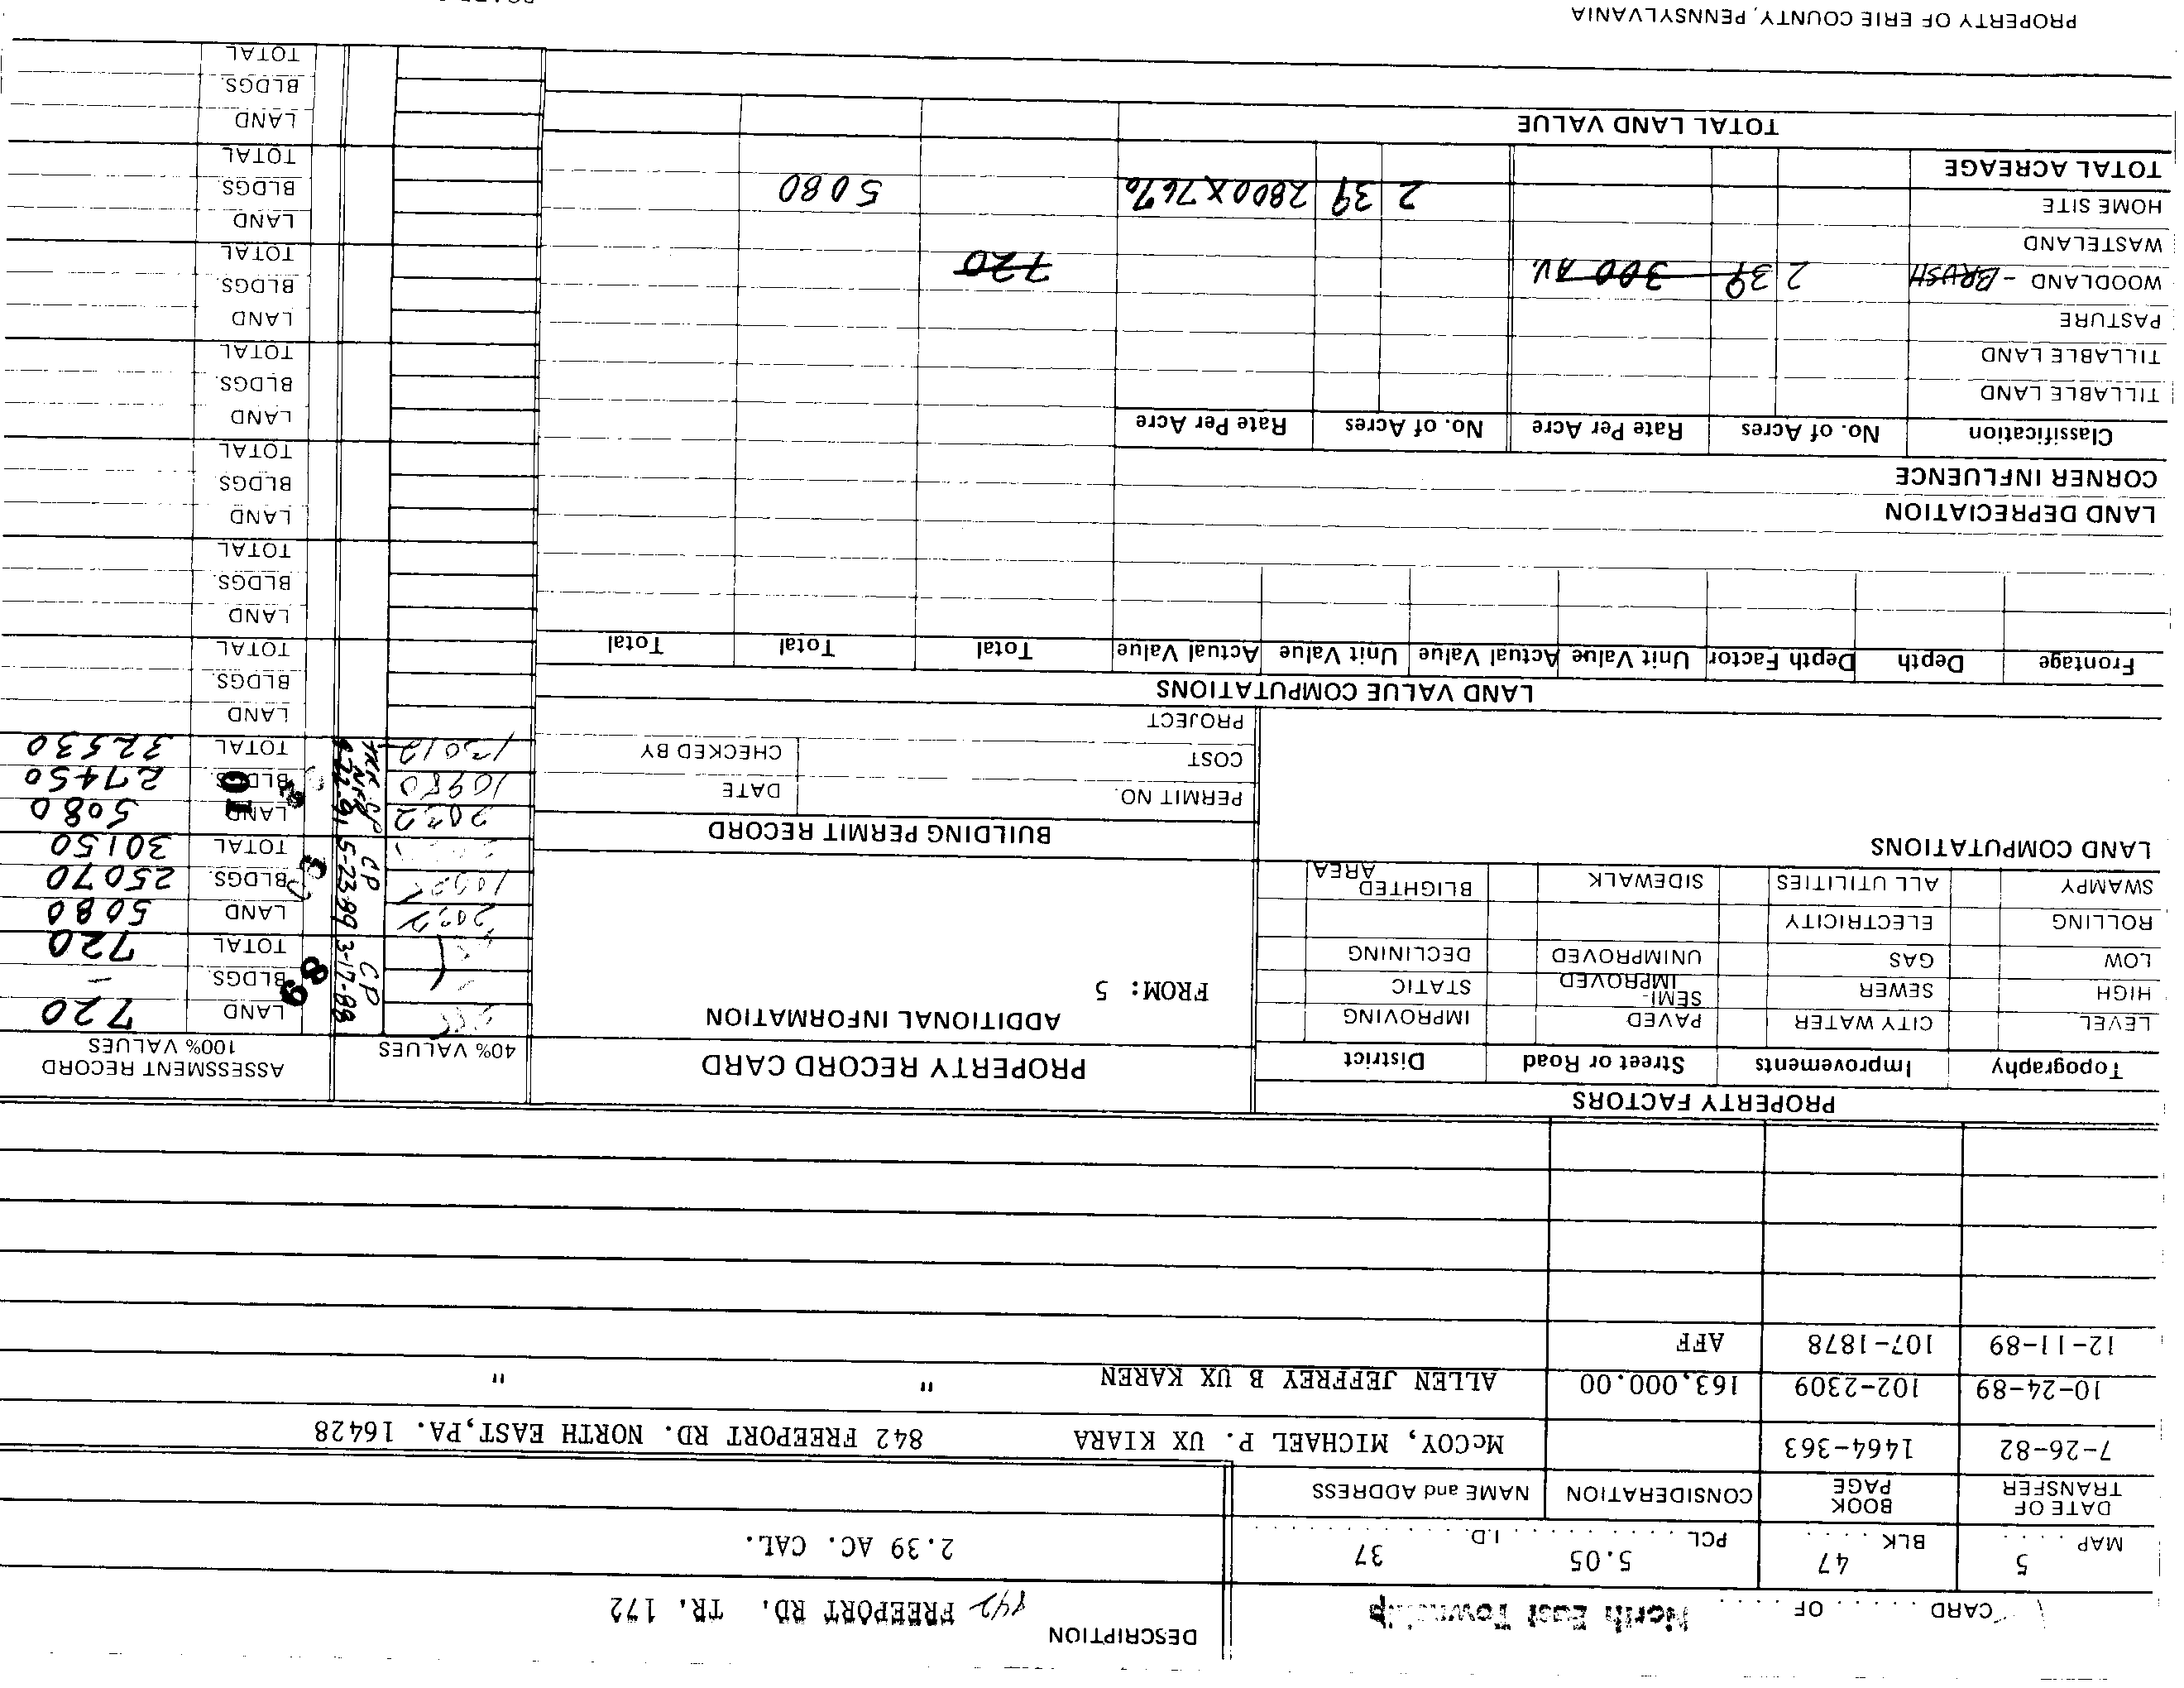 CARD ..... OF .... North East Township
DESCRIPTION
842 FREEPORT RD. TR. 172
MAP 5 BLK 47 PCL 5.05 I.D. 37
2.39 AC. CAL.
DATE OF TRANSFER BOOK PAGE CONSIDERATION NAME and ADDRESS
7-26-82 1464-363 McCOY, MICHAEL P. UX KIARA 842 FREEPORT RD. NORTH EAST,PA. 16428
10-24-89 102-2309 163,000.00 ALLEN JEFFREY B UX KAREN " "
12-11-89 107-1878 AFF
PROPERTY FACTORS
Topography Improvements Street or Road District
LEVEL CITY WATER PAVED IMPROVING
HIGH SEWER SEMI-IMPROVED STATIC
LOW GAS UNIMPROVED DECLINING
ROLLING ELECTRICITY
SWAMPY ALL UTILITIES SIDEWALK BLIGHTED AREA
LAND COMPUTATIONS
PROPERTY RECORD CARD
ADDITIONAL INFORMATION
FROM: 5
BUILDING PERMIT RECORD
PERMIT NO. DATE
COST CHECKED BY
PROJECT
40% VALUES
ASSESSMENT RECORD
100% VALUES
CP 3-17-88
89
LAND 720
BLDGS. -
TOTAL 720
CP 5-23-89
2032 LAND 5080
BLDGS. 25070
TOTAL 30150
01
2032 LAND 5080
10980 BLDGS. 27450
13012 TOTAL 32530
LAND
BLDGS.
TOTAL
LAND
BLDGS.
TOTAL
LAND
BLDGS.
TOTAL
LAND
BLDGS.
TOTAL
LAND
BLDGS.
TOTAL
LAND
BLDGS.
TOTAL
LAND
BLDGS.
TOTAL
LAND VALUE COMPUTATIONS
Frontage Depth Depth Factor Unit Value Actual Value Unit Value Actual Value Total Total Total
LAND DEPRECIATION
CORNER INFLUENCE
Classification No. of Acres Rate Per Acre No. of Acres Rate Per Acre
TILLABLE LAND
TILLABLE LAND
PASTURE
WOODLAND - BRUSH 2 39 300 AV 720
WASTELAND
HOME SITE 2 39 2800 X 76% 5080
TOTAL ACREAGE
TOTAL LAND VALUE
PROPERTY OF ERIE COUNTY, PENNSYLVANIA